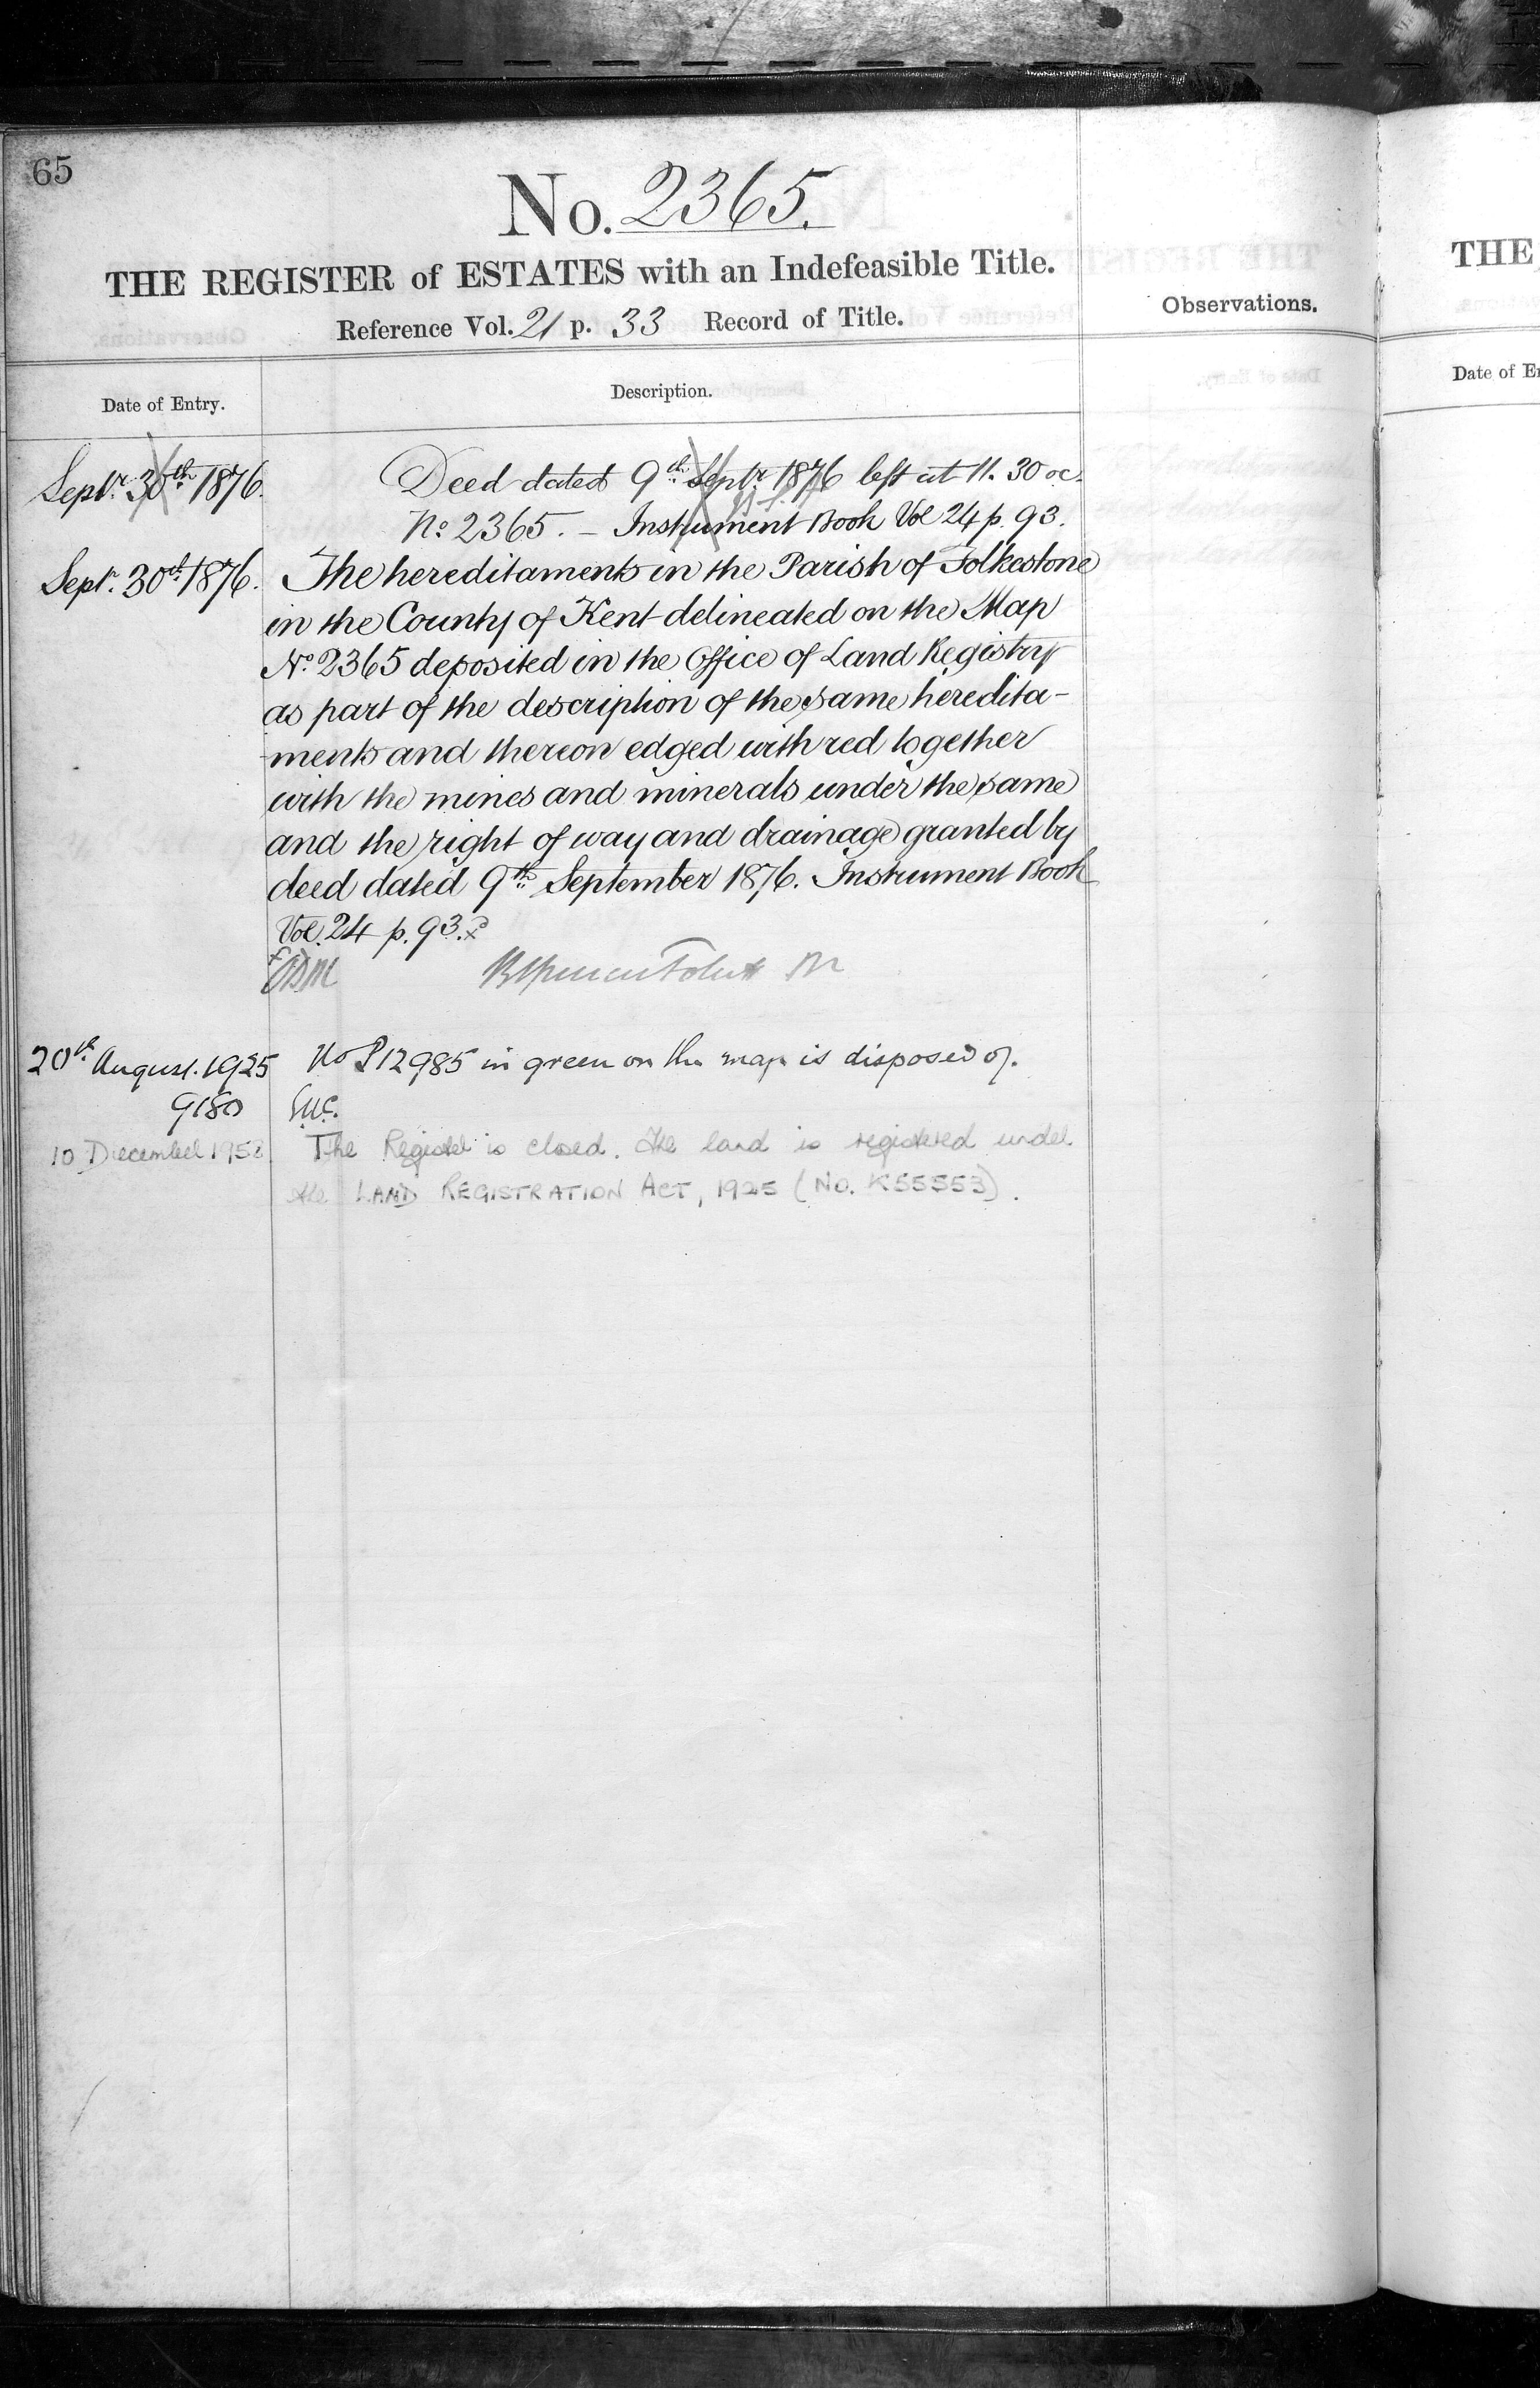 65
No. 2365.
THE REGISTER of ESTATES with an Indefeasible Title.
Reference Vol. 21 p. 33 Record of Title.
Observations.
Date of Entry.
Description.
Septr. 30th 1876.
Deed dated 9th Septr. 1876 left at 11.30 oc.
No. 2365. – Instrument Book Vol 24 p. 93.
Septr. 30th 1876.
The hereditaments in the Parish of Folkestone
in the County of Kent delineated on the Map
No. 2365 deposited in the Office of Land Registry
as part of the description of the same heredita-
-ments and thereon edged with red together
with the mines and minerals under the same
and the right of way and drainage granted by
deed dated 9th September 1876. Instrument Book
Vol. 24 p. 93.
20th August. 1925
No P12985 in green on the map is disposed of.
9180
10 December 1952
The Register is closed. The land is registered under
the LAND REGISTRATION ACT, 1925 (No. K55553).
THE
Date of En